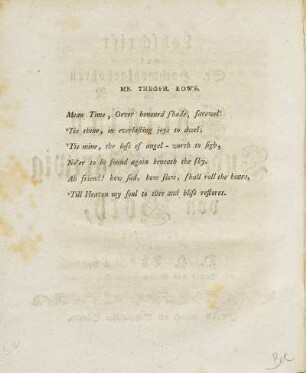 MR. THEOPH. ROWE.
Mean Time, O ever honour'd shade, farewel!
'Tis thine, in everlasting joys to dwel,
'Tis mine, the loss of angel-worth to sigh,
Ne'er to be found again beneath the sky.
Ah friend! how sad, how slow, shall roll the hours,
'Till Heaven my soul to thee and bliss restores.